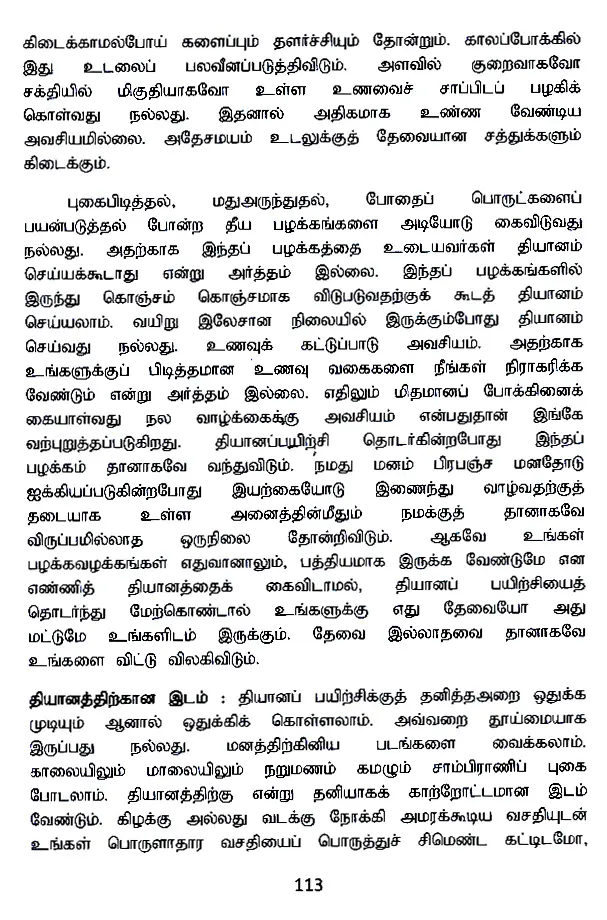 கிடைக்காமல்போய் களைப்பும் தளர்ச்சியும் தோன்றும். காலப்போக்கில்
இது உடலைப் பலவீனப்படுத்திவிடும். அளவில் குறைவாகவோ
சக்தியில் மிகுதியாகவோ உள்ள உணவைச் சாப்பிடப் பழகிக்
கொள்வது நல்லது. இதனால் அதிகமாக உண்ண வேண்டிய
அவசியமில்லை. அதேசமயம் உடலுக்குத் தேவையான சத்துக்களும்
கிடைக்கும்.
புகைபிடித்தல், மதுஅருந்துதல், போதைப் பொருட்களைப்
பயன்படுத்தல் போன்ற தீய பழக்கங்களை அடியோடு கைவிடுவது
நல்லது. அதற்காக இந்தப் பழக்கத்தை உடையவர்கள் தியானம்
செய்யக்கூடாது என்று அர்த்தம் இல்லை. இந்தப் பழக்கங்களில்
இருந்து கொஞ்சம் கொஞ்சமாக விடுபடுவதற்குக் கூடத் தியானம்
செய்யலாம். வயிறு இலேசான நிலையில் இருக்கும்போது தியானம்
செய்வது நல்லது. உணவுக் கட்டுப்பாடு அவசியம். அதற்காக
உங்களுக்குப் பிடித்தமான உணவு வகைகளை நீங்கள் நிராகரிக்க
வேண்டும் என்று அர்த்தம் இல்லை. எதிலும் மிதமானப் போக்கினைக்
கையாள்வது நல வாழ்க்கைக்கு அவசியம் என்பதுதான் இங்கே
வற்புறுத்தப்படுகிறது. தியானப்பயிற்சி தொடர்கின்றபோது இந்தப்
பழக்கம் தானாகவே வந்துவிடும். நமது மனம் பிரபஞ்ச மனதோடு
ஐக்கியப்படுகின்றபோது இயற்கையோடு இணைந்து வாழ்வதற்குத்
தடையாக உள்ள அனைத்தின்மீதும் நமக்குத் தானாகவே
விருப்பமில்லாத ஒருநிலை தோன்றிவிடும். ஆகவே உங்கள்
பழக்கவழக்கங்கள் எதுவானாலும், பத்தியமாக இருக்க வேண்டுமே என
எண்ணித் தியானத்தைக் கைவிடாமல், தியானப் பயிற்சியைத்
தொடர்ந்து மேற்கொண்டால் உங்களுக்கு எது தேவையோ அது
மட்டுமே உங்களிடம் இருக்கும். தேவை இல்லாதவை தானாகவே
உங்களை விட்டு விலகிவிடும்.
தியானத்திற்கான இடம் : தியானப் பயிற்சிக்குத் தனித்தஅறை ஒதுக்க
முடியும் ஆனால் ஒதுக்கிக் கொள்ளலாம். அவ்வறை தூய்மையாக
இருப்பது நல்லது. மனத்திற்கினிய படங்களை வைக்கலாம்.
காலையிலும் மாலையிலும் நறுமணம் கமழும் சாம்பிராணிப் புகை
போடலாம். தியானத்திற்கு என்று தனியாகக் காற்றோட்டமான இடம்
வேண்டும். கிழக்கு அல்லது வடக்கு நோக்கி அமரக்கூடிய வசதியுடன்
உங்கள் பொருளாதார வசதியைப் பொருத்துச் சிமெண்ட கட்டிடமோ,
113